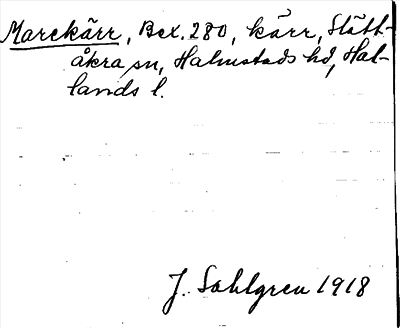 Marekärr, Bex. 280, kärr, Slätt-
åkra sn, Halmstads hd, Hal-
lands l.
J. Sahlgren 1918